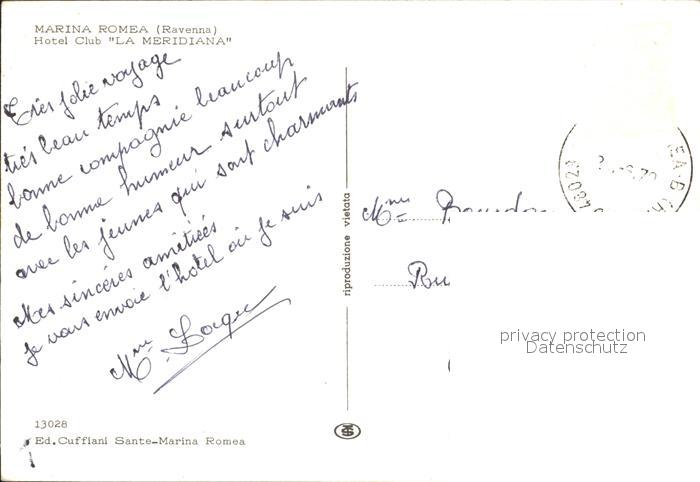 MARINA ROMEA (Ravenna)
Hotel Club "LA MERIDIANA"
Très jolie voyage
très beau temps
bonne compagnie beaucoup
de bonne humeur surtout
avec les jeunes qui sont charmants
Mes sincères amitiées
je vous envoie l'hôtel où je suis
Mme
riproduzione vietata
Mme
48023
privacy protection
Datenschutz
13028
Ed.Cuffiani Sante-Marina Romea